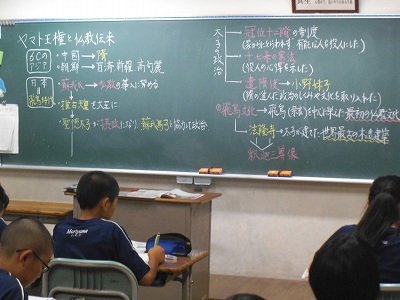 ヤマト王権と仏教伝来
6Cの
アジア
・中国→隋
・朝鮮→百済・新羅・高句麗
日本
飛鳥時代
・蘇我氏→仏教の導入に努める
・推古天皇を大王に
→聖徳太子が摂政になり、蘇我馬子と協力して政治
太子の政治
冠位十二階の制度
(家がらにとらわれず 有能な人を役人にした)
十七条の憲法
(役人の心得を示した)
遣隋使→小野妹子
(隋の進んだ政治のしくみや文化を取り入れた)
飛鳥文化→飛鳥(奈良)を中心に栄えた最初の仏教文化
→法隆寺→太子が建てた世界最古の木造建築
釈迦三尊像
Moriyama